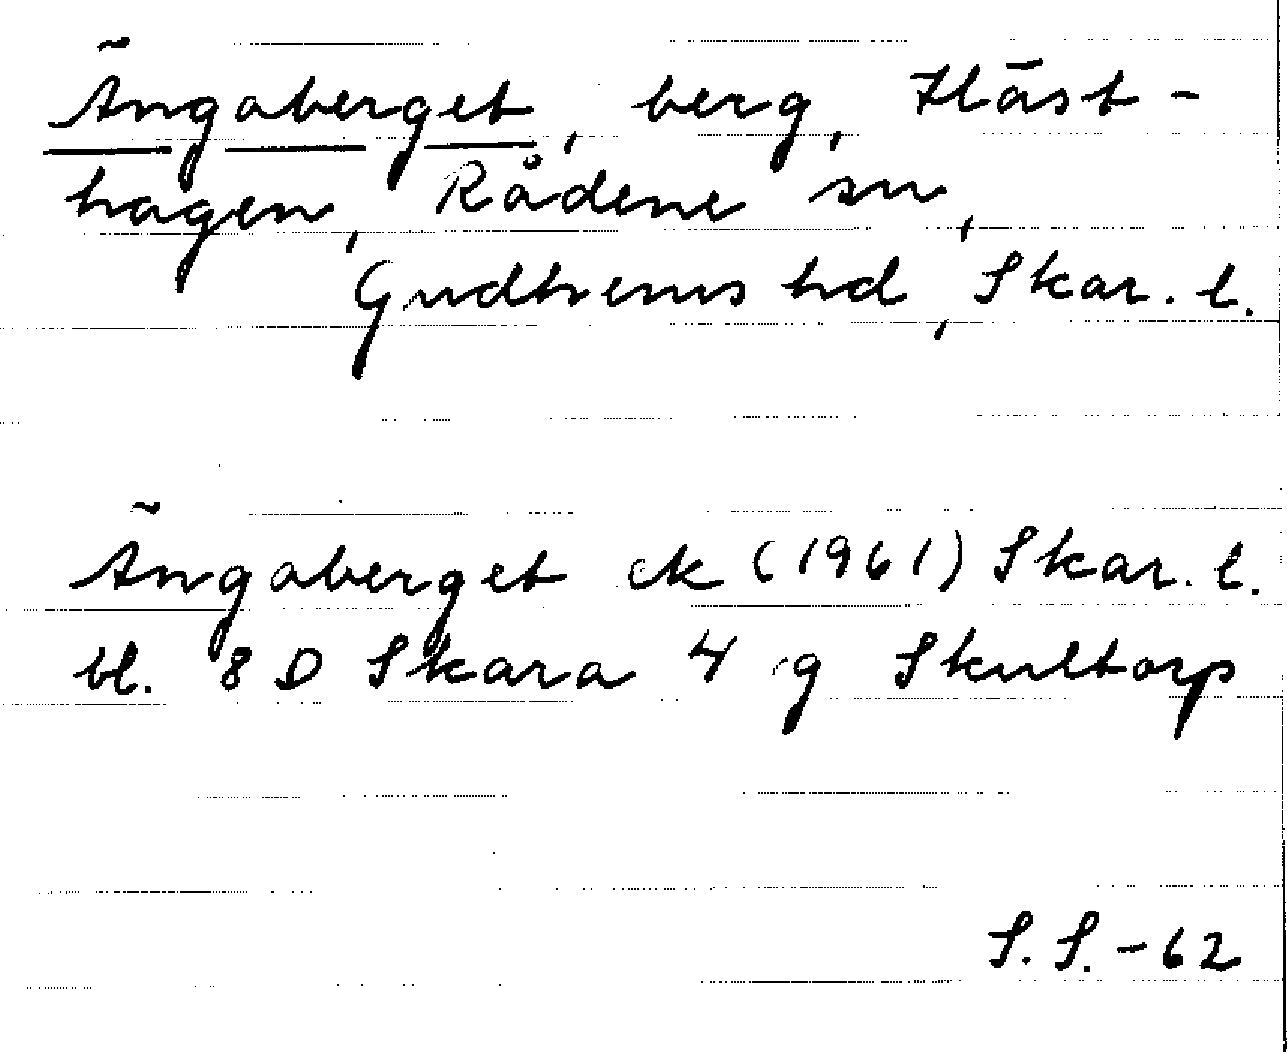 Ängaberget, berg, Häst-
hagen, Rådene sn,
Gudhems hd, Skar. l.
Ängaberget ek (1961) Skar. l.
bl. 8 D Skara 4 g Skultorp
S.S. -62